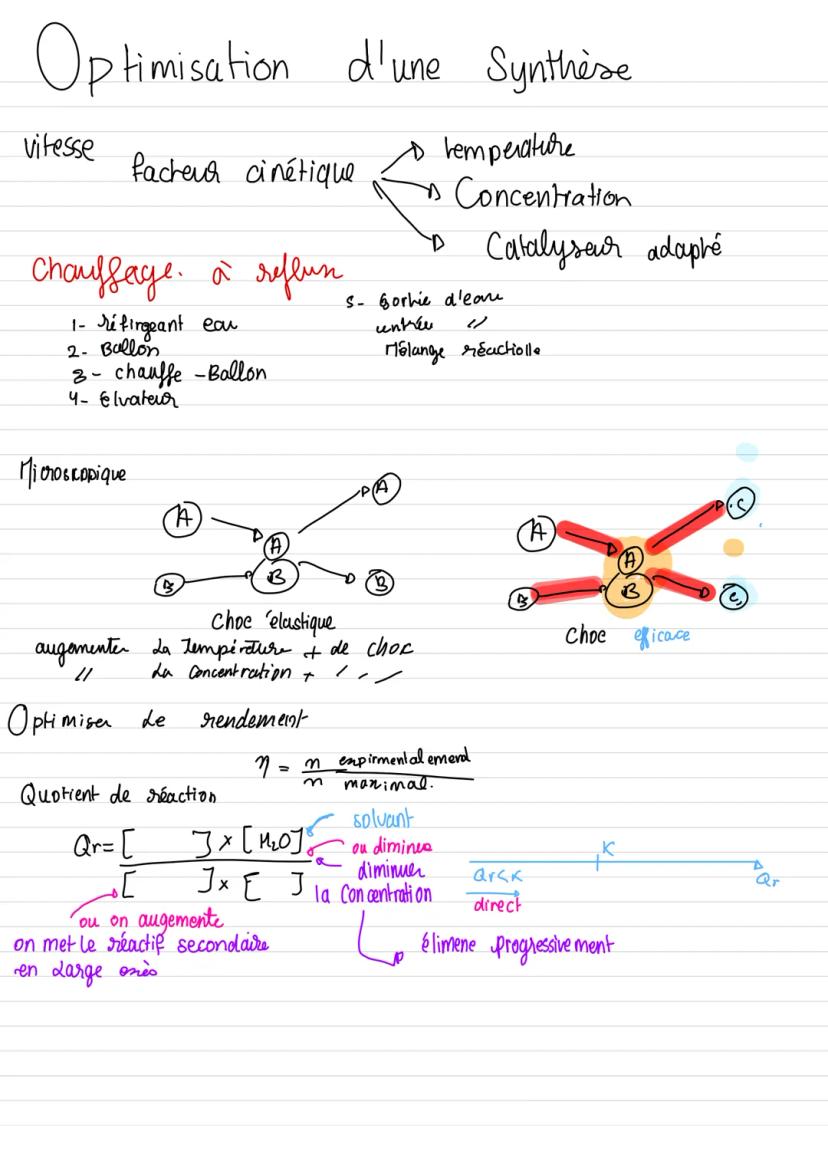 Optimisation d'une Synthèse
vitesse
facteur cinétique
température
Concentration
Catalyseur adapté
Chauffage. à reflux
1- réfirgeant eau
2- Ballon
3- chauffe-Ballon
4- élvateur
5- Sortie d'eau
entrée "
Mélange réactionne
Microscopique
A
A
A
B
B
B
Choc élastique
A
A
B
B
C
C
Choc eficace
augementer La Température + de choc
" La Concentration + " " "
Optimiser Le rendement
η = n expirmentalement
n maximal.
Quotient de réaction
Qr = [ ] × [H₂O]
[ ] × [ ]
solvant
ou diminue
diminuer
la Concentration
élimene progressivement
ou on augemente
on met le réactif secondaire
en Large exès
K
Qr<K
Qr
direct